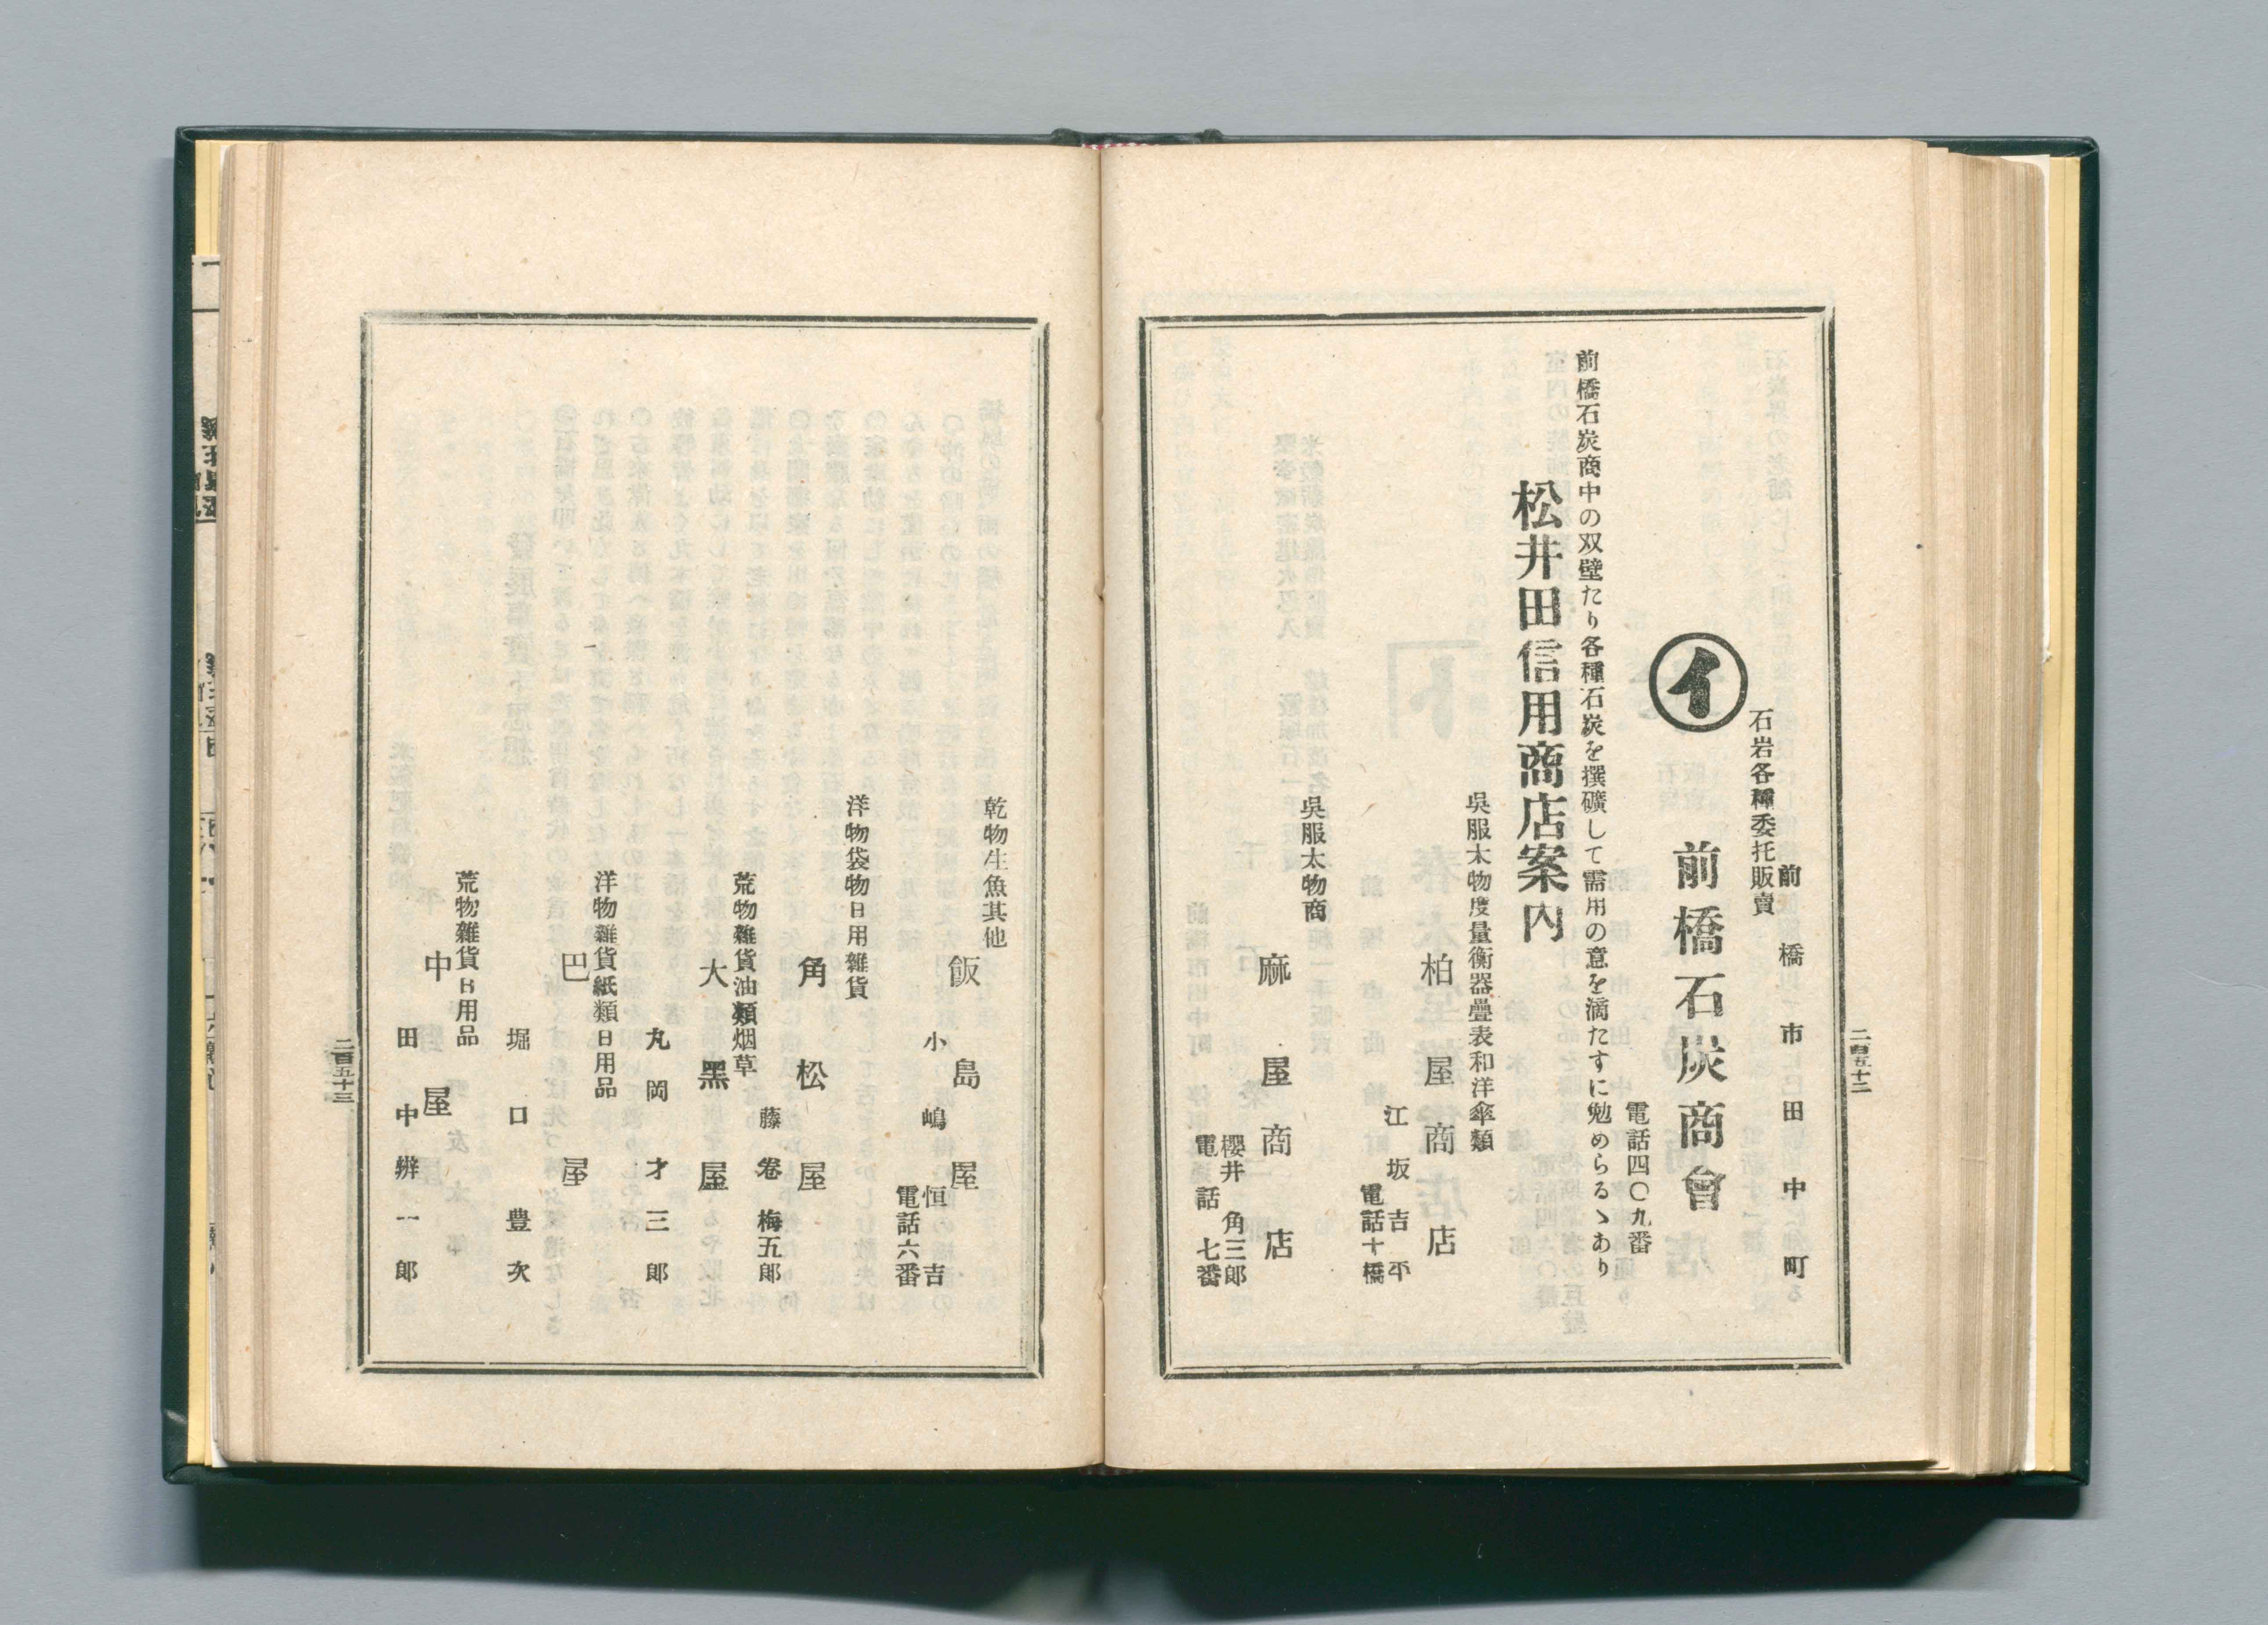 二百五十二
前橋市田中町
石岩各種委托販賣
イ
前橋石炭商會
電話四〇九番
前橋石炭商中の双壁たり各種石炭を撰礦して需用の意を滿たすに勉めらるゝあり
松井田信用商店案内
呉服太物度量衡器疊表和洋傘類
柏屋商店
江坂吉平
電話十橋
呉服太物商
麻屋商店
櫻井角三郎
電話七番
乾物生魚其他
飯島屋
小嶋恒吉
電話六番
洋物袋物日用雜貨
角松屋
藤卷梅五郎
荒物雜貨油類烟草
大黑屋
丸岡才三郎
洋物雜貨紙類日用品
巴屋
堀口豊次
荒物雜貨日用品
中屋
田中辨一郎
二百五十三